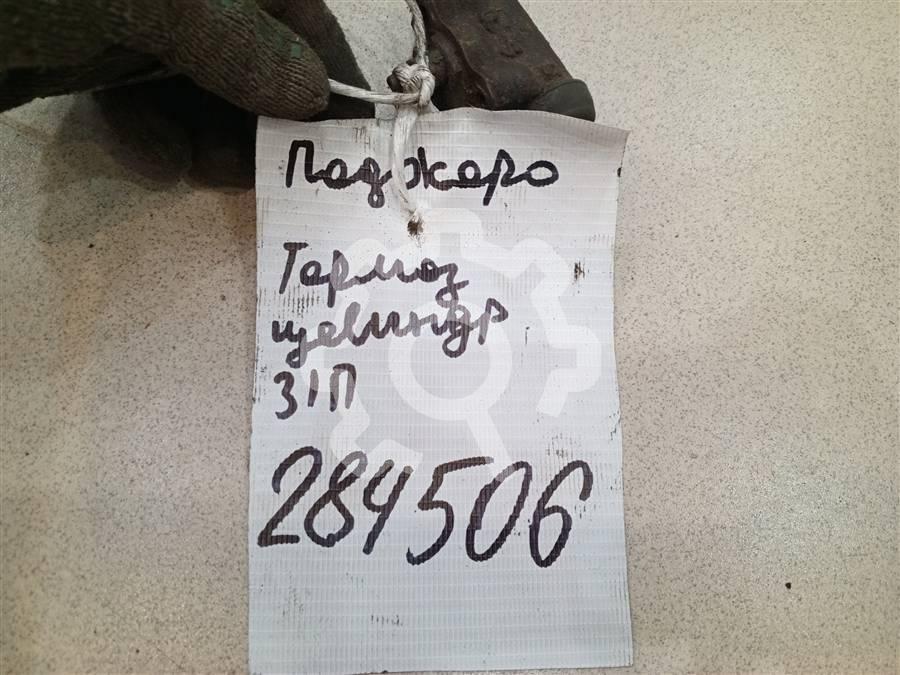 Паджеро
Тармоз
щелиндр
З/П
284506